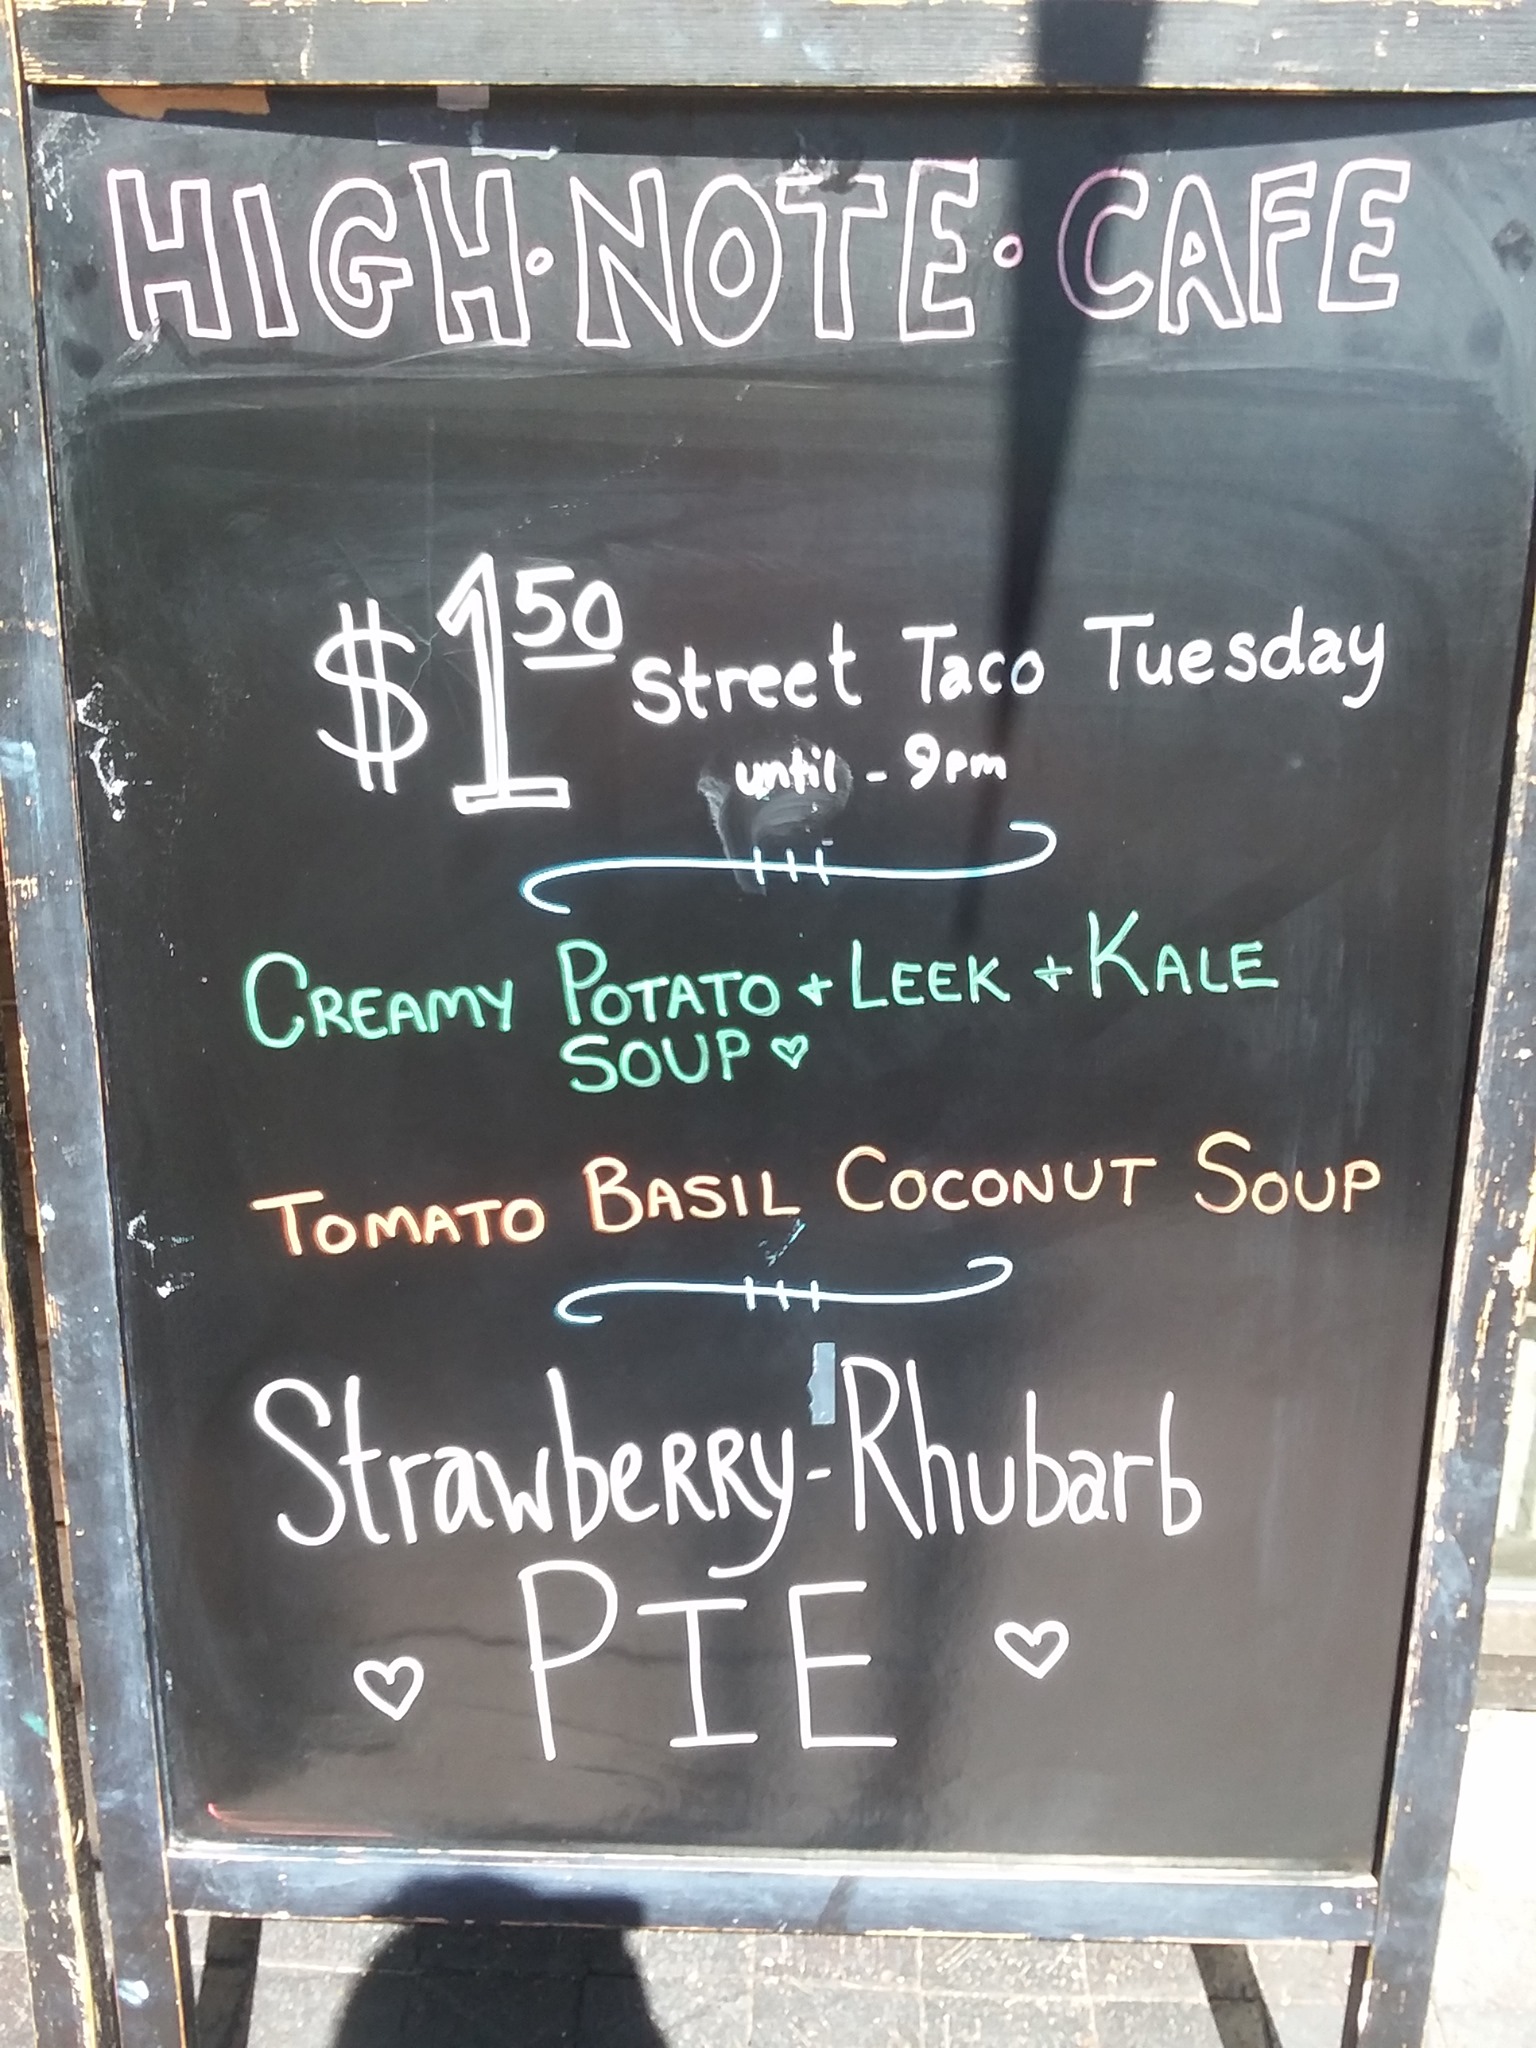 HIGH·NOTE·CAFE
$1.50 Street Taco Tuesday
until - 9pm
CREAMY POTATO + LEEK + KALE
SOUP ♡
TOMATO BASIL COCONUT SOUP
Strawberry-Rhubarb
♡ PIE ♡